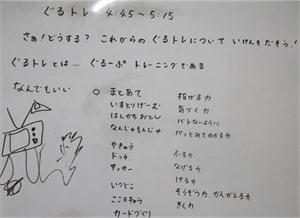 ぐるトレ 4:45〜5:15
さぁ！どうする？ これからのぐるトレについて いけんをだそう！
ぐるトレとは… ぐるーぷ トレーニングである
なんでもいい
○ まとあて 投げる力
いすとりげーむ 気づく力
はんかちおとし バレないように
なんじゃもんじゃ パッとみてわかる力
やきゅう ふる力
ドッチ なげる力
サッカー ける力
いつどこ そうぞう力 かんがえる力
ここネキャラ きく力
カードづくり